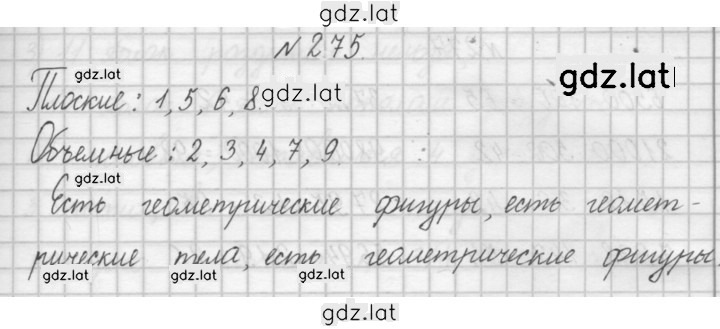 gdz.lat
N 275.
gdz.lat
gdz.lat
Плоские: 1, 5, 6, 8. gdz.lat
gdz.lat
Объемные: 2, 3, 4, 7, 9.
gdz.lat
Есть геометрические фигуры, есть геомет-
рические тела, есть геометрические фигуры.
gdz.lat gdz.lat gdz.lat gdz.lat
gdz.lat